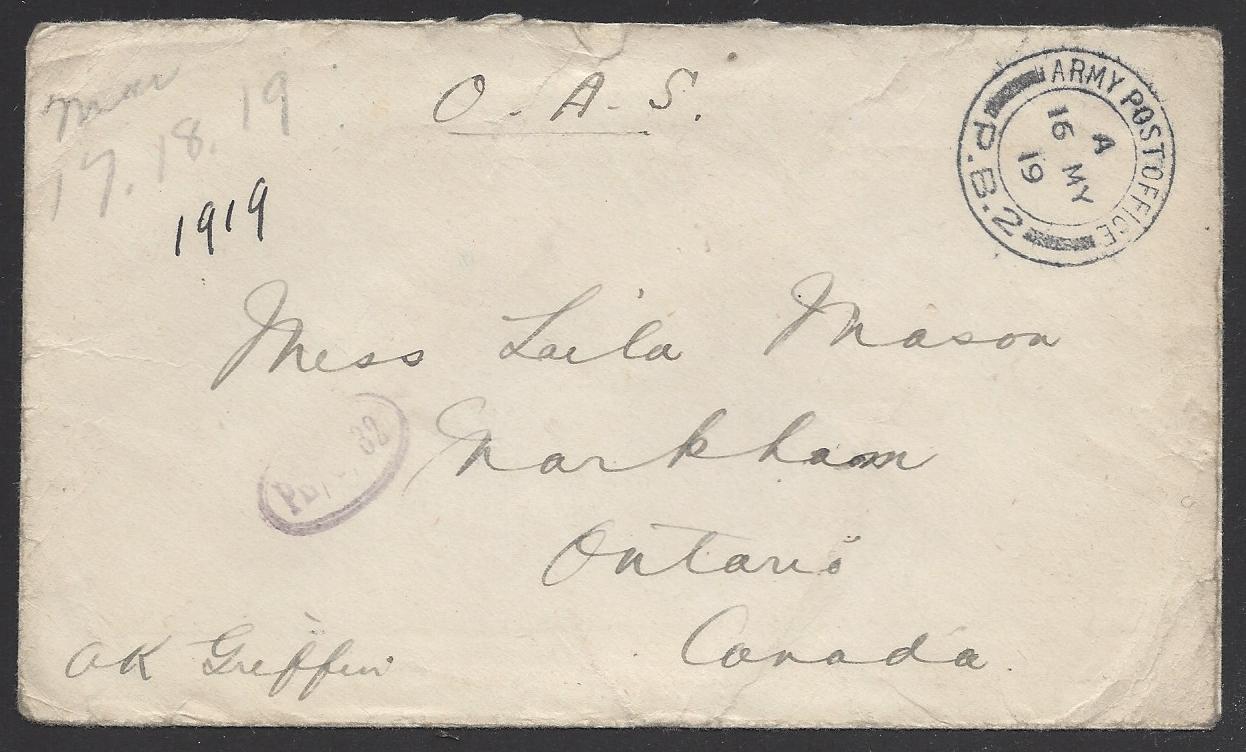 O.A.S.
ARMY POST OFFICE
A
16 MY
19
P.B.2
17.18.19
1919
Miss Laila Mason
Markham
Ontario
Canada
OK Griffin